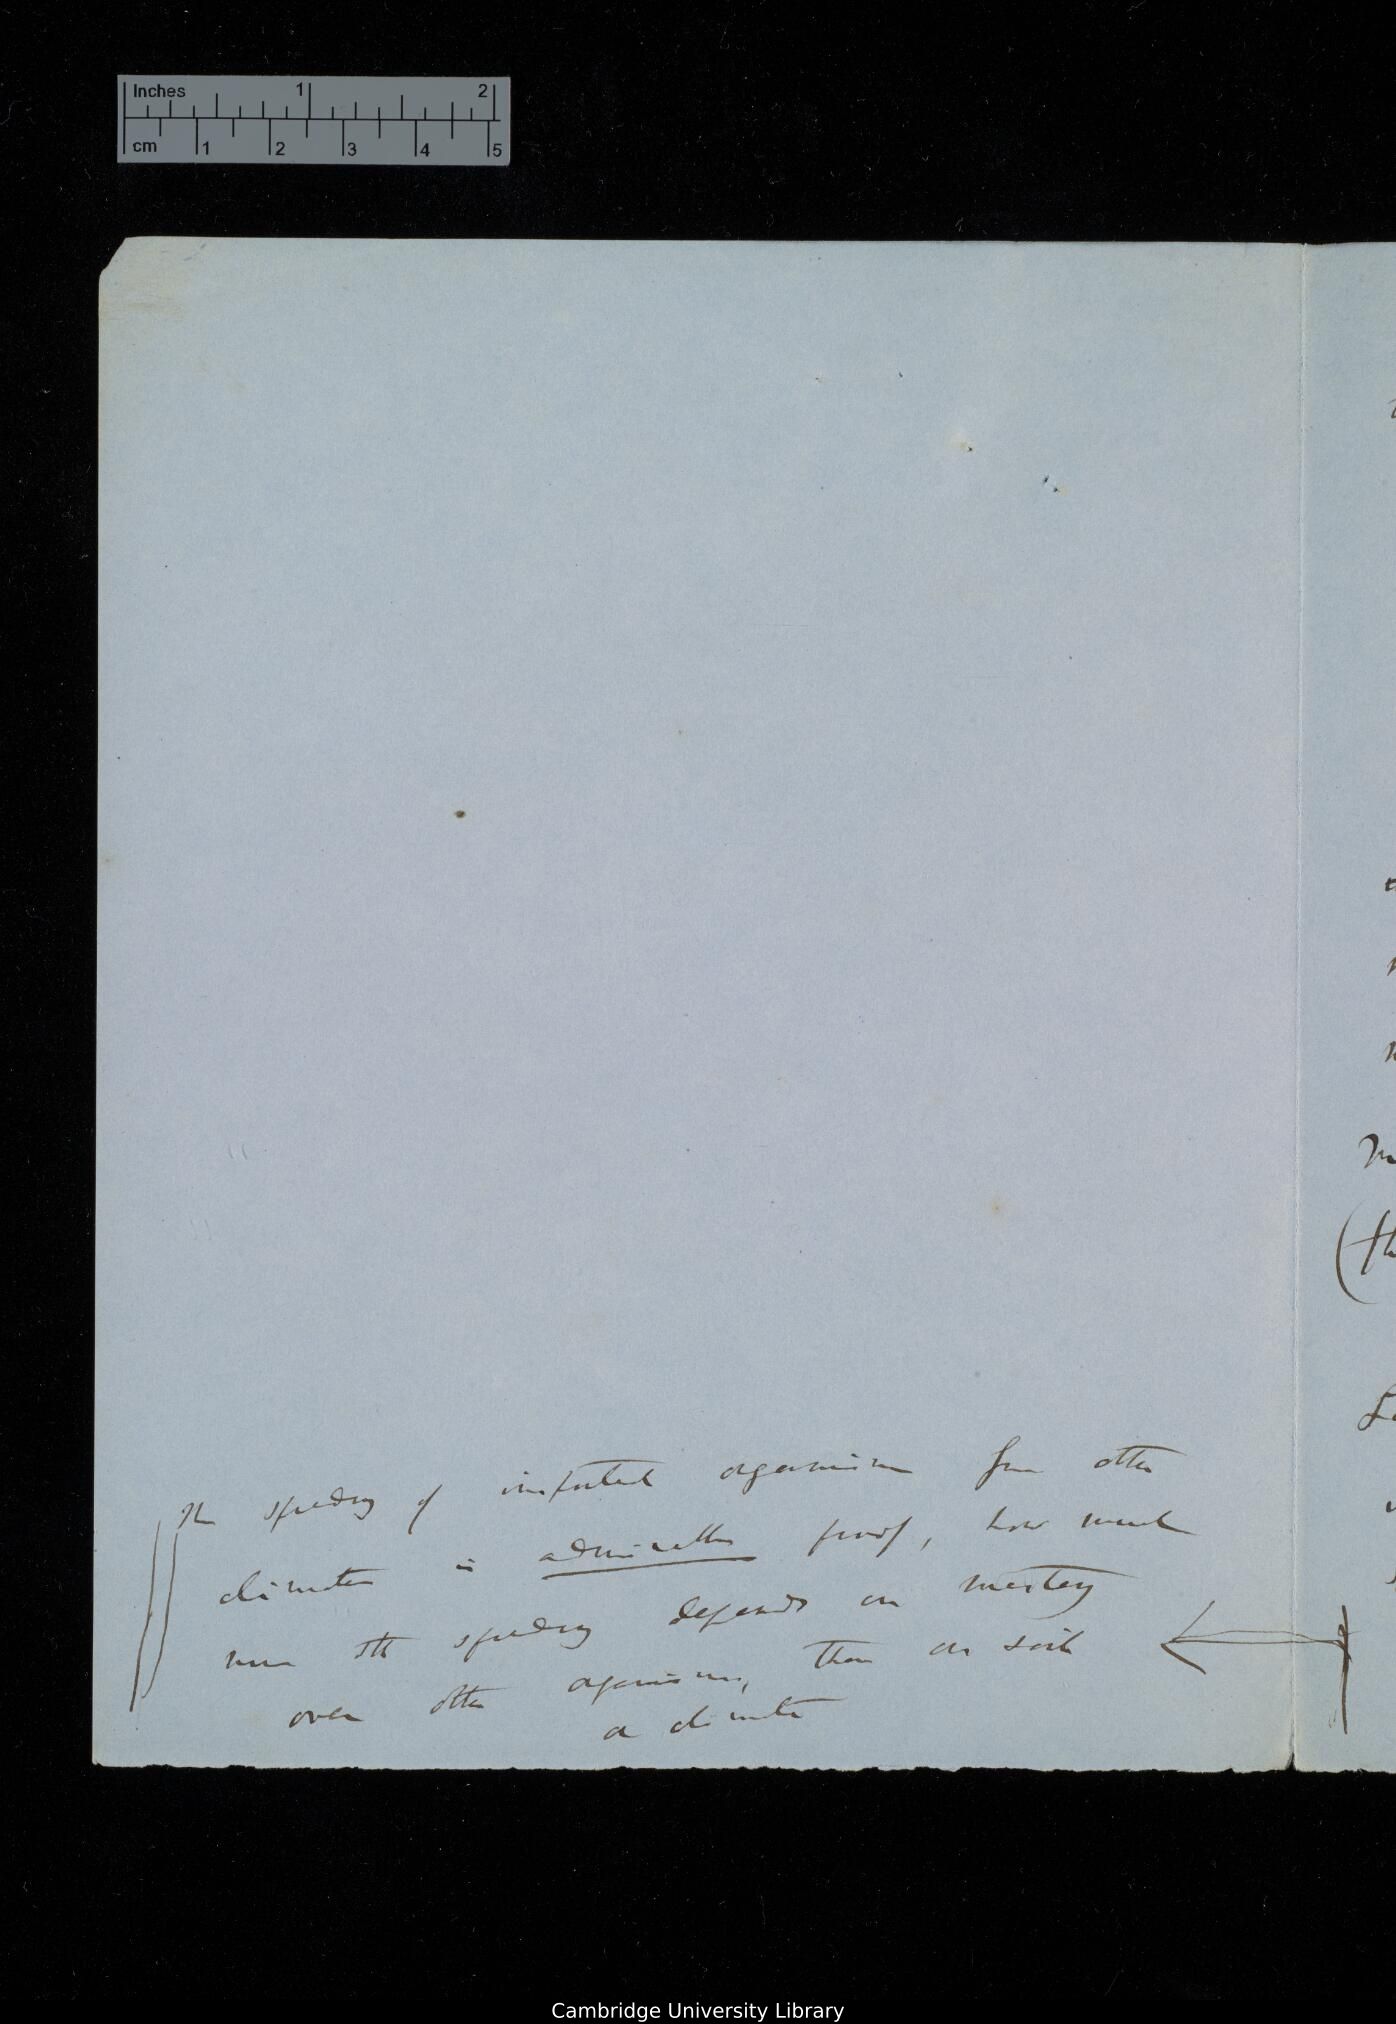 Inches 1 2
cm 1 2 3 4 5
The spreading of imported organisms from other
climates is admirable proof, how much
more the spreading depends on mastery
over other organisms, than on soil
or climate
Cambridge University Library